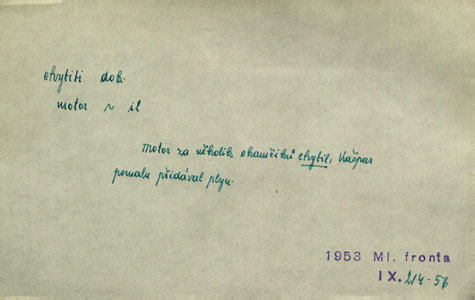 chytiti dok.
motor ~ il
Motor za několik okamžiků chytil, Kašpar
pomalu přidával plyn.
1953 Ml. fronta
IX. 214-56